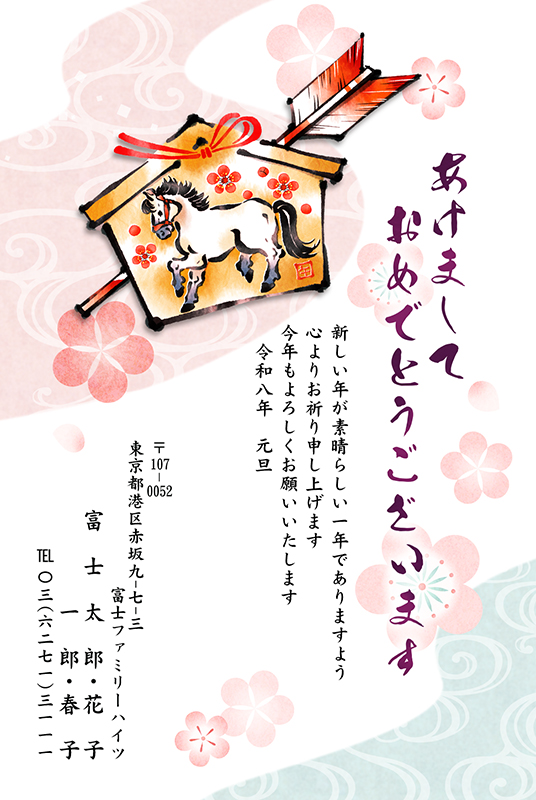 あけまして
おめでとうございます
新しい年が素晴らしい一年でありますよう
心よりお祈り申し上げます
今年もよろしくお願いいたします
令和八年 元旦
〒107-0052
東京都港区赤坂九-七-三
富士ファミリーハイツ
富士太郎・花子
一郎・春子
TEL〇三(六二七一)三一一一